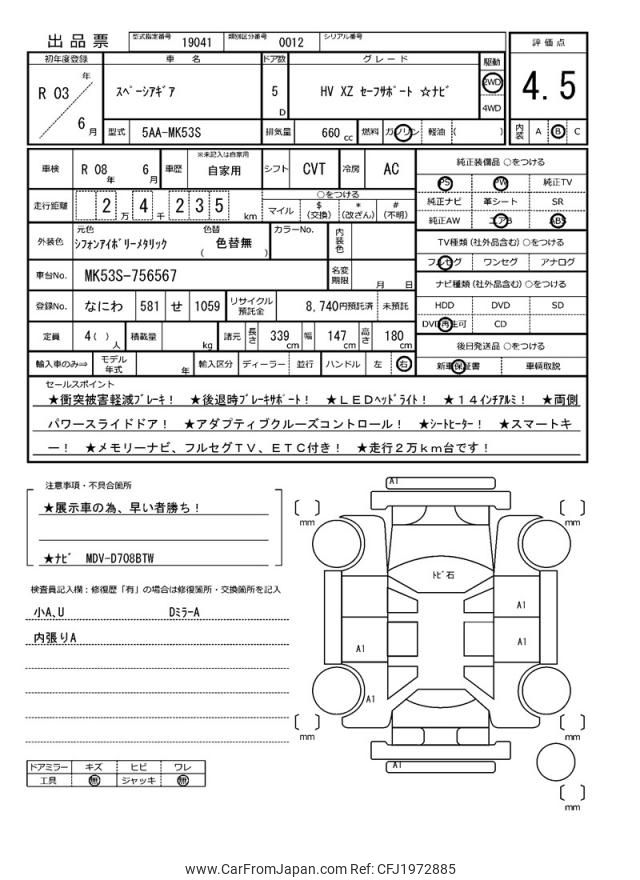 出品票 型式指定番号 19041 類別区分番号 0012 シリアル番号
評価点
4.5
内装 A B C
初年度登録 車名 ドア数 グレード 駆動
R 03 年 6 月
ｽﾍﾟｰｼｱｷﾞｱ
5 D
HV XZ ｾｰﾌｻﾎﾟｰﾄ ☆ﾅﾋﾞ
2WD
4WD
型式 5AA-MK53S 排気量 660 cc 燃料 ガソリン 軽油 ( )
車検 R 08 年 6 月 車歴 ※未記入は自家用 自家用 シフト CVT 冷房 AC
走行距離 2 万 4 千 2 3 5 km
○をつける
マイル $(交換) *(改ざん) #(不明)
外装色 元色 ｼﾌｫﾝｱｲﾎﾞﾘｰﾒﾀﾘｯｸ 色替 ( 色替無 ) カラーNo. 内装色
車台No. MK53S-756567 名変期限 月 日
登録No. なにわ 581 せ 1059 リサイクル預託金 8,740円預託済 未預託
定員 4 ( ) 人 積載量 kg 諸元 長さ 339 cm 幅 147 cm 高さ 180 cm
輸入車のみ⇒ モデル年式 年 輸入区分 ディーラー 並行 ハンドル 左 右
純正装備品 ○をつける
PS PW 純正TV
純正ナビ 革シート SR
純正AW エアB ABS
TV種類(社外品含む) ○をつける
フルセグ ワンセグ アナログ
ナビ種類(社外品含む) ○をつける
HDD DVD SD
DVD再生可 CD
後日発送品 ○をつける
新車保証書 車輌取説
セールスポイント
★衝突被害軽減ﾌﾞﾚｰｷ！ ★後退時ﾌﾞﾚｰｷｻﾎﾟｰﾄ！ ★ＬＥＤﾍｯﾄﾞﾗｲﾄ！ ★１４ｲﾝﾁｱﾙﾐ！ ★両側
パワースライドドア！ ★アダプティブクルーズコントロール！ ★ｼｰﾄﾋｰﾀｰ！ ★スマートキ
ー！ ★メモリーナビ、フルセグＴＶ、ＥＴＣ付き！ ★走行２万ｋｍ台です！
注意事項・不具合箇所
★展示車の為、早い者勝ち！
★ﾅﾋﾞ MDV-D708BTW
検査員記入欄：修復歴「有」の場合は修復箇所・交換箇所を記入
小A､U DﾐﾗｰA
内張りA
ドアミラー キズ ヒビ ワレ
工具 無 ジャッキ 無
A1
mm
mm
ﾄﾋﾞ石
A1
A1
A1
A1
mm
mm
A1
mm
www.CarFromJapan.com Ref: CFJ1972885